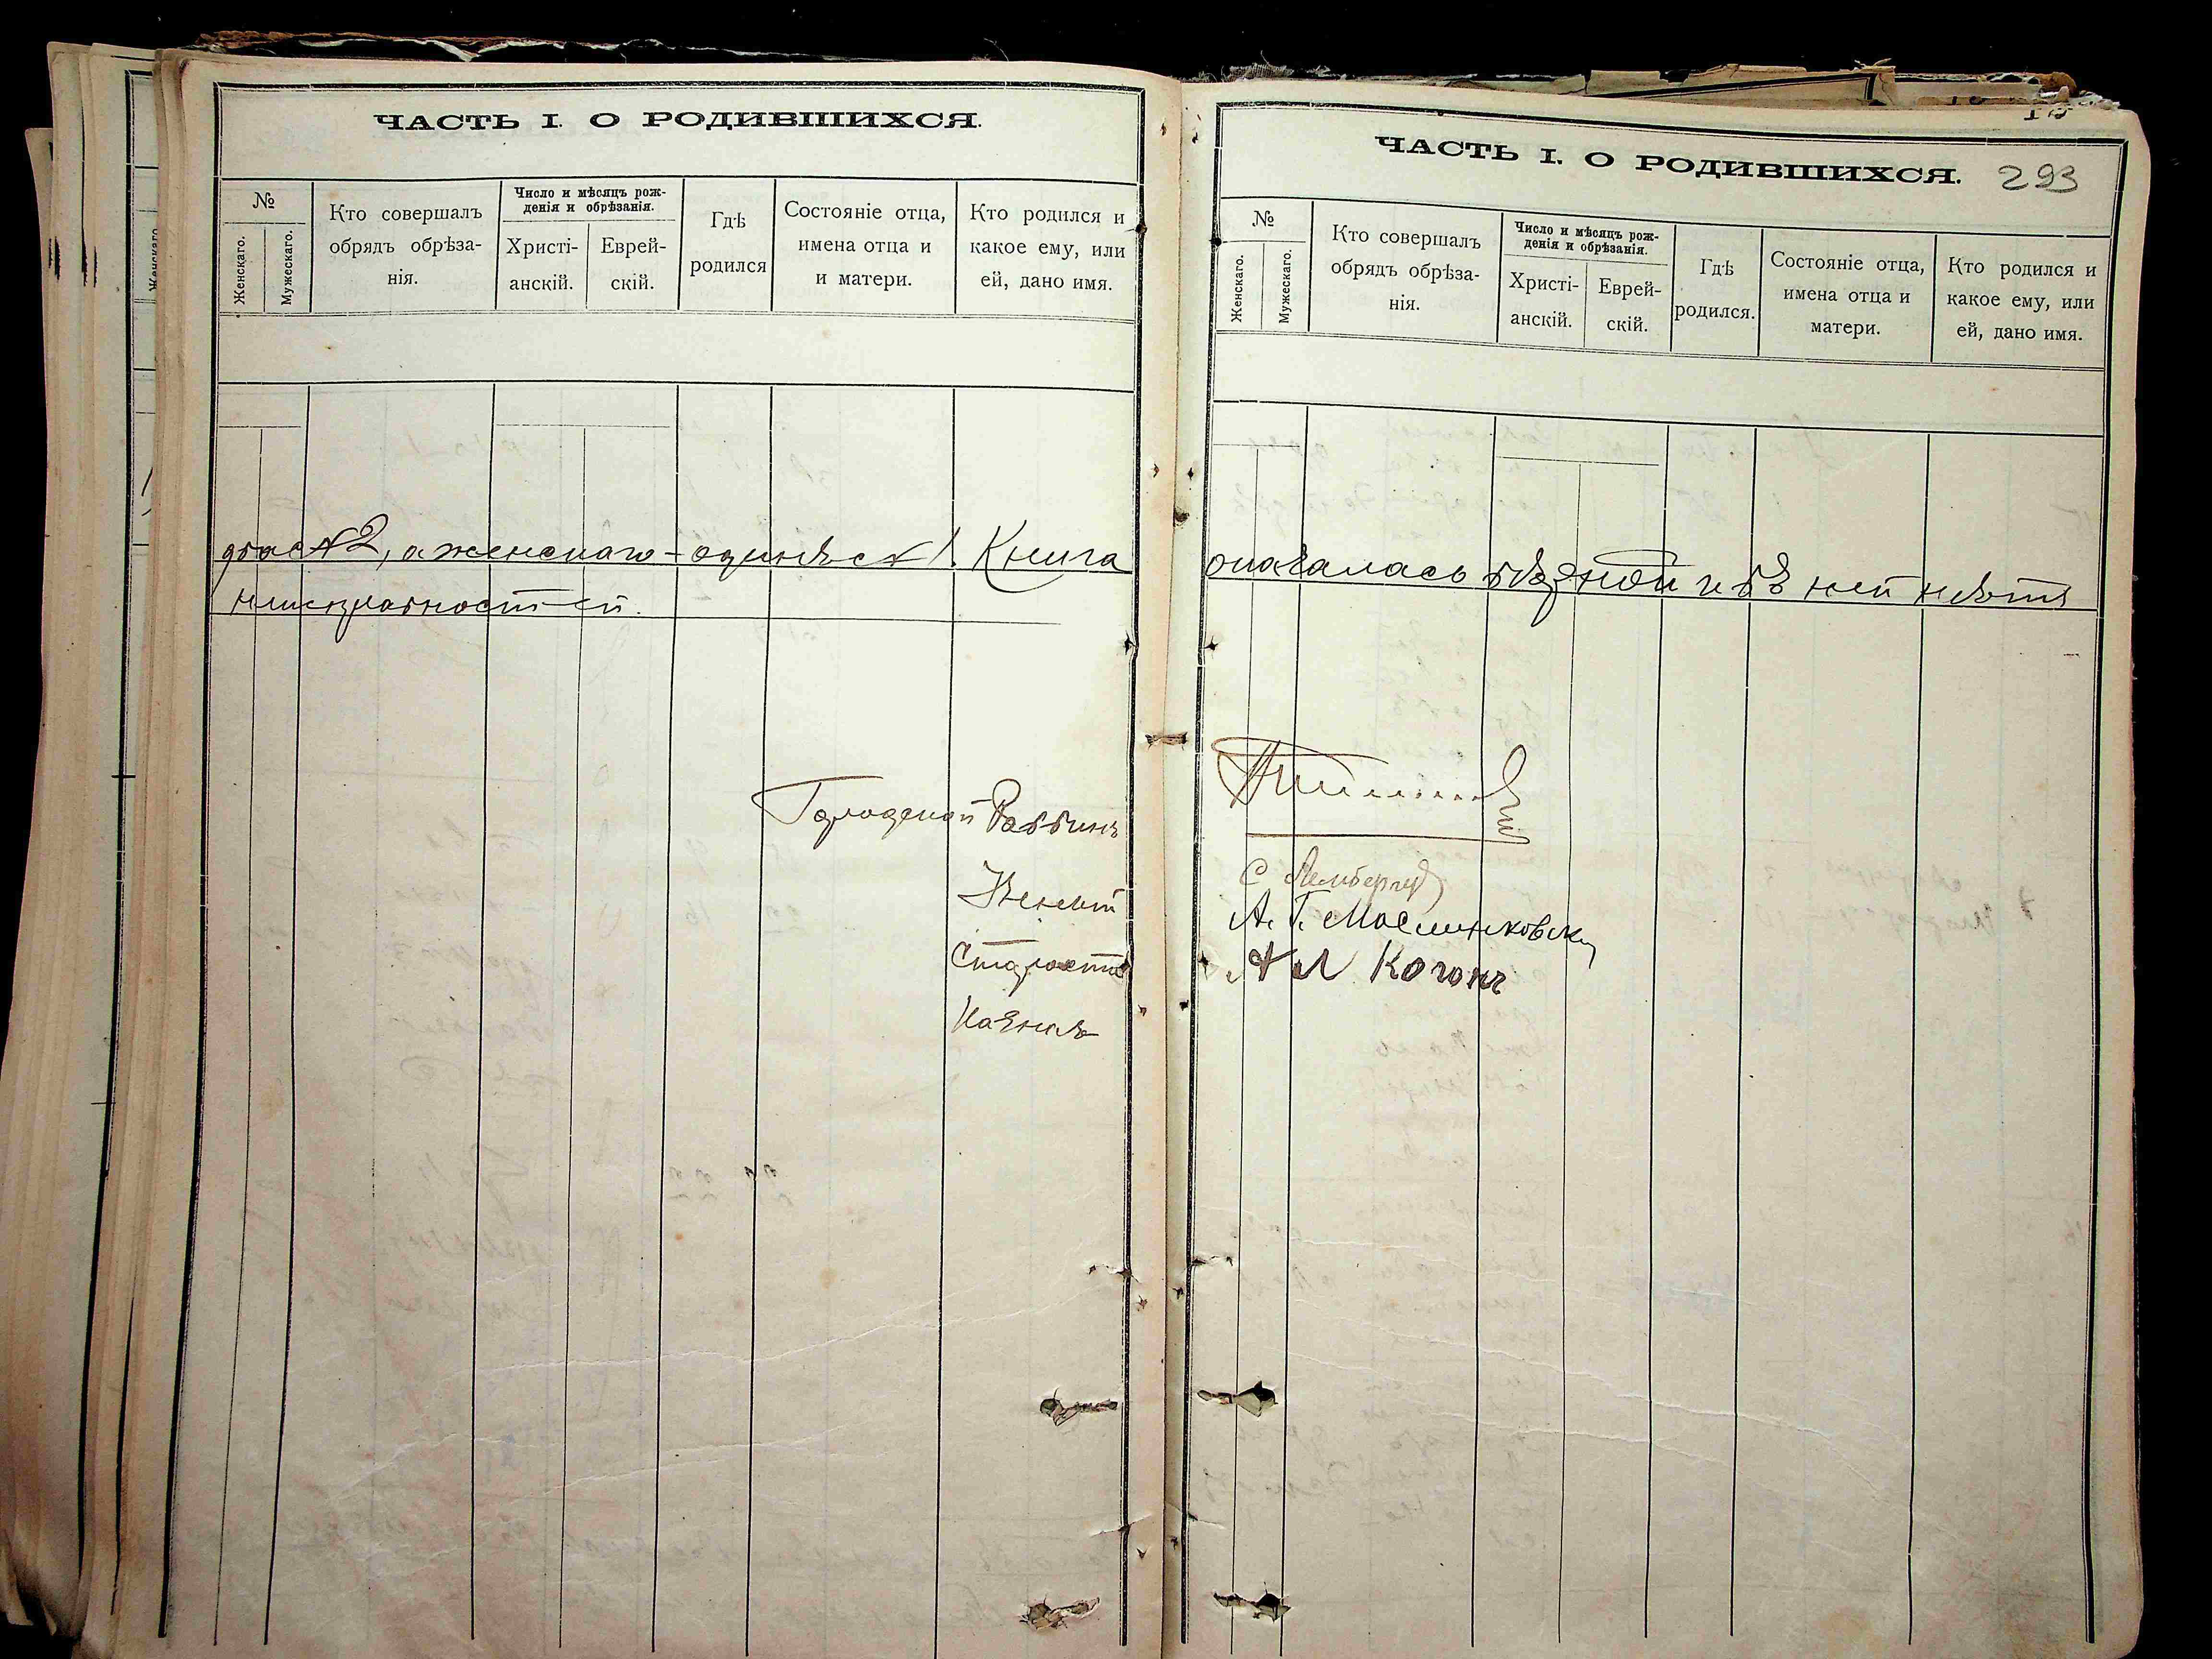 ЧАСТЬ I. О РОДИВШИХСЯ.
№
Женскаго.
Мужескаго.
Кто совершалъ
обрядъ обрѣза-
нія.
Число и мѣсяцъ рож-
денія и обрѣзанія.
Христі-
анскій.
Еврей-
скій.
Гдѣ
родился
Состояніе отца,
имена отца и
и матери.
Кто родился и
какое ему, или
ей, дано имя.
два с № 2, а женскаго - одинъ с № 1. Книга
неисправностей.
Городской Раввинъ
Староста
Казнач
ЧАСТЬ I. О РОДИВШИХСЯ.
293
№
Женскаго.
Мужескаго.
Кто совершалъ
обрядъ обрѣза-
нія.
Число и мѣсяцъ рож-
денія и обрѣзанія.
Христі-
анскій.
Еврей-
скій.
Гдѣ
родился.
Состояніе отца,
имена отца и
матери.
Кто родился и
какое ему, или
ей, дано имя.
оказалась вѣрной и въ ней нѣтъ
С Лембергъ
А. Г. Маслинковскі
А Л Коганъ